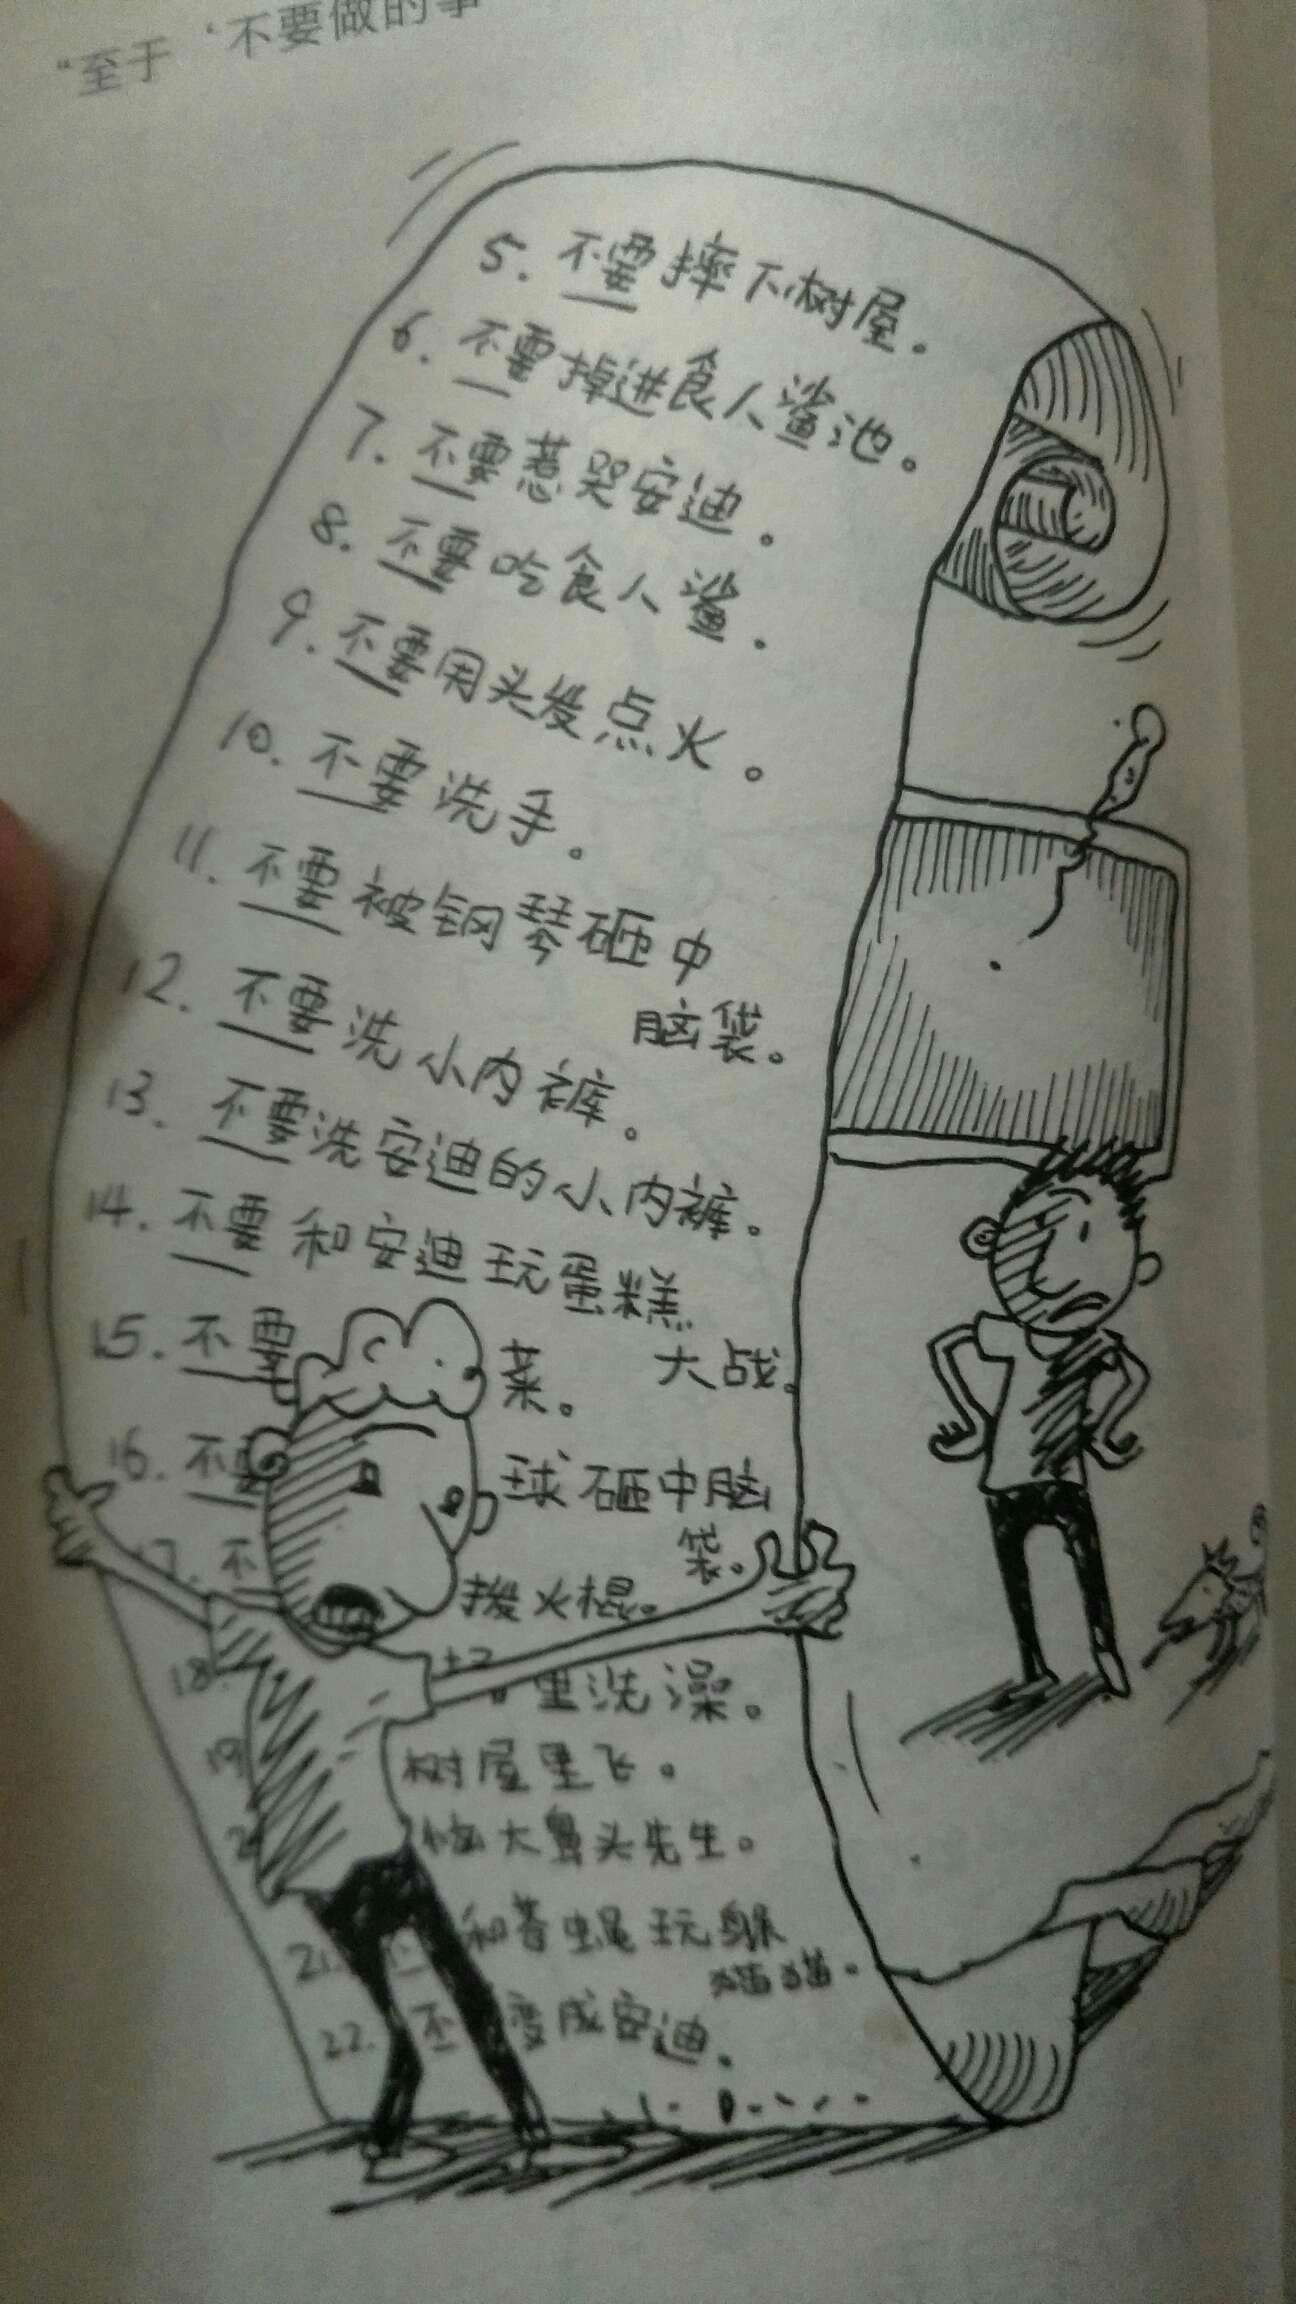 “至于‘不要做的事
5. 不要摔下树屋。
6. 不要掉进食人鲨池。
7. 不要惹哭安迪。
8. 不要吃食人鲨。
9. 不要用头发点火。
10. 不要洗手。
11. 不要被钢琴砸中
脑袋。
12. 不要洗小内裤。
13. 不要洗安迪的小内裤。
14. 不要和安迪玩蛋糕
大战。
15. 不要 菜。
16. 不要 球砸中脑
袋。
17. 不 拨火棍。
18. 里洗澡。
19 树屋里飞。
2 恼大鼻头先生。
21. 不 和苍蝇玩躲
猫猫。
22. 不 变成安迪。